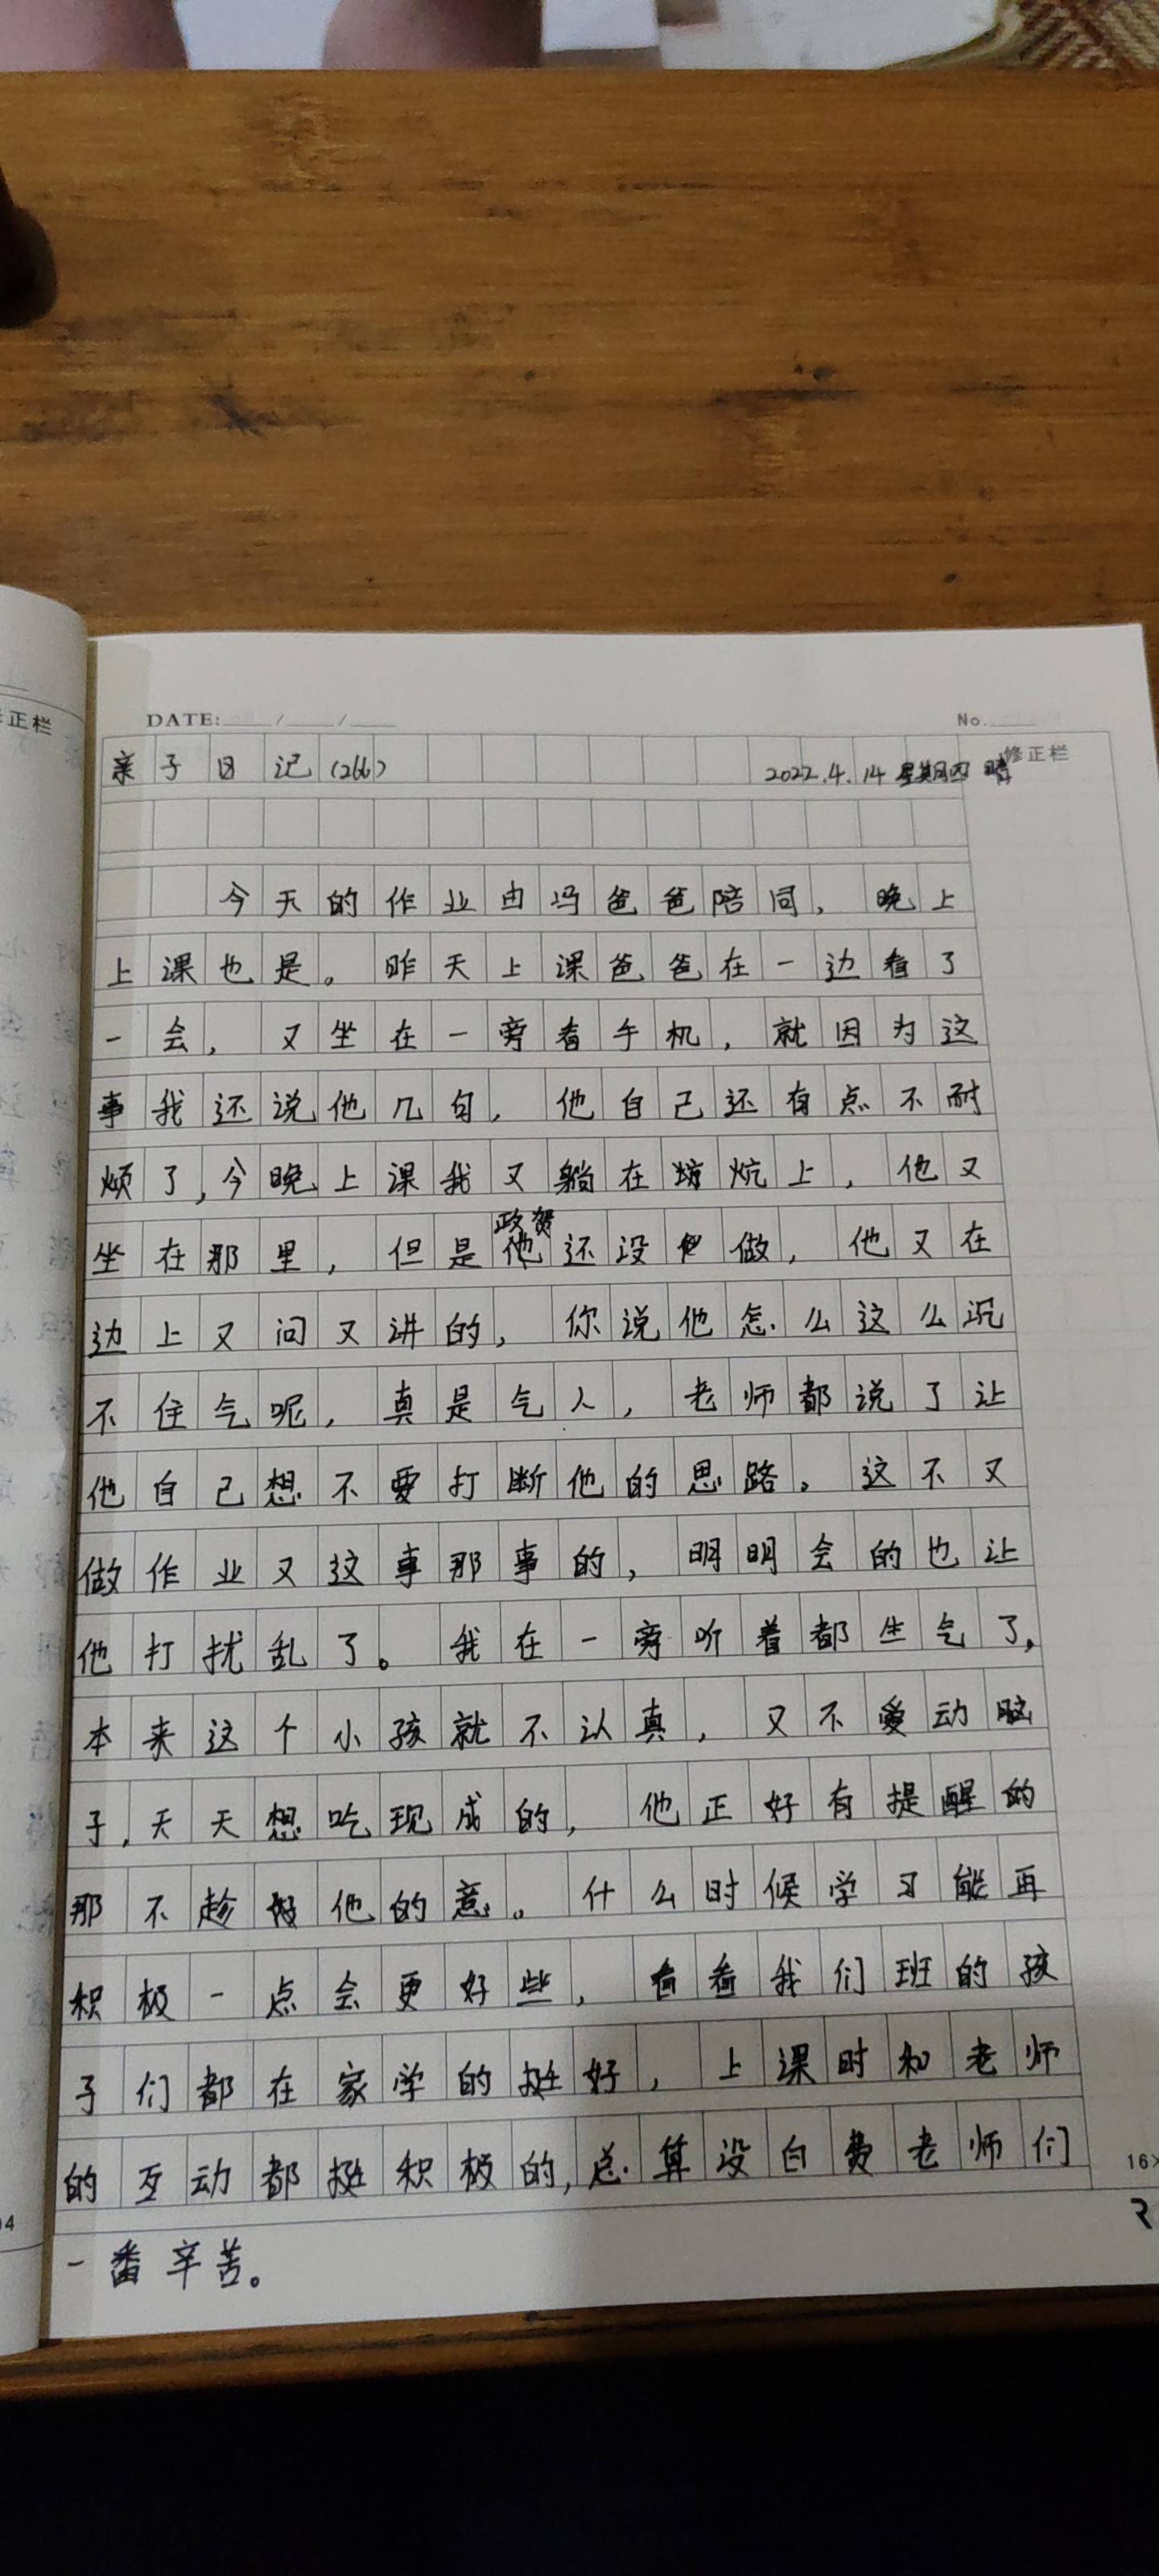 正栏
DATE: / /
No.
亲子日记(266) 2022.4.14 星期四 晴
修正栏
今天的作业由冯爸爸陪同，晚上
上课也是。昨天上课爸爸在一边看了
一会，又坐在一旁看手机，就因为这
事我还说他几句，他自己还有点不耐
烦了，今晚上课我又躺在炕上，他又
政贺
坐在那里，但是他还没做，他又在
边上又问又讲的，你说他怎么这么沉
不住气呢，真是气人，老师都说了让
他自己想不要打断他的思路。这不又
做作业又这事那事的，明明会的也让
他打扰乱了。我在一旁听着都生气了，
本来这个小孩就不认真，又不爱动脑
子，天天想吃现成的，他正好有提醒的
那不趁他的意。什么时候学习能再
积极一点会更好些，看看我们班的孩
子们都在家学的挺好，上课时和老师
的互动都挺积极的，总算没白费老师们
16×
一番辛苦。